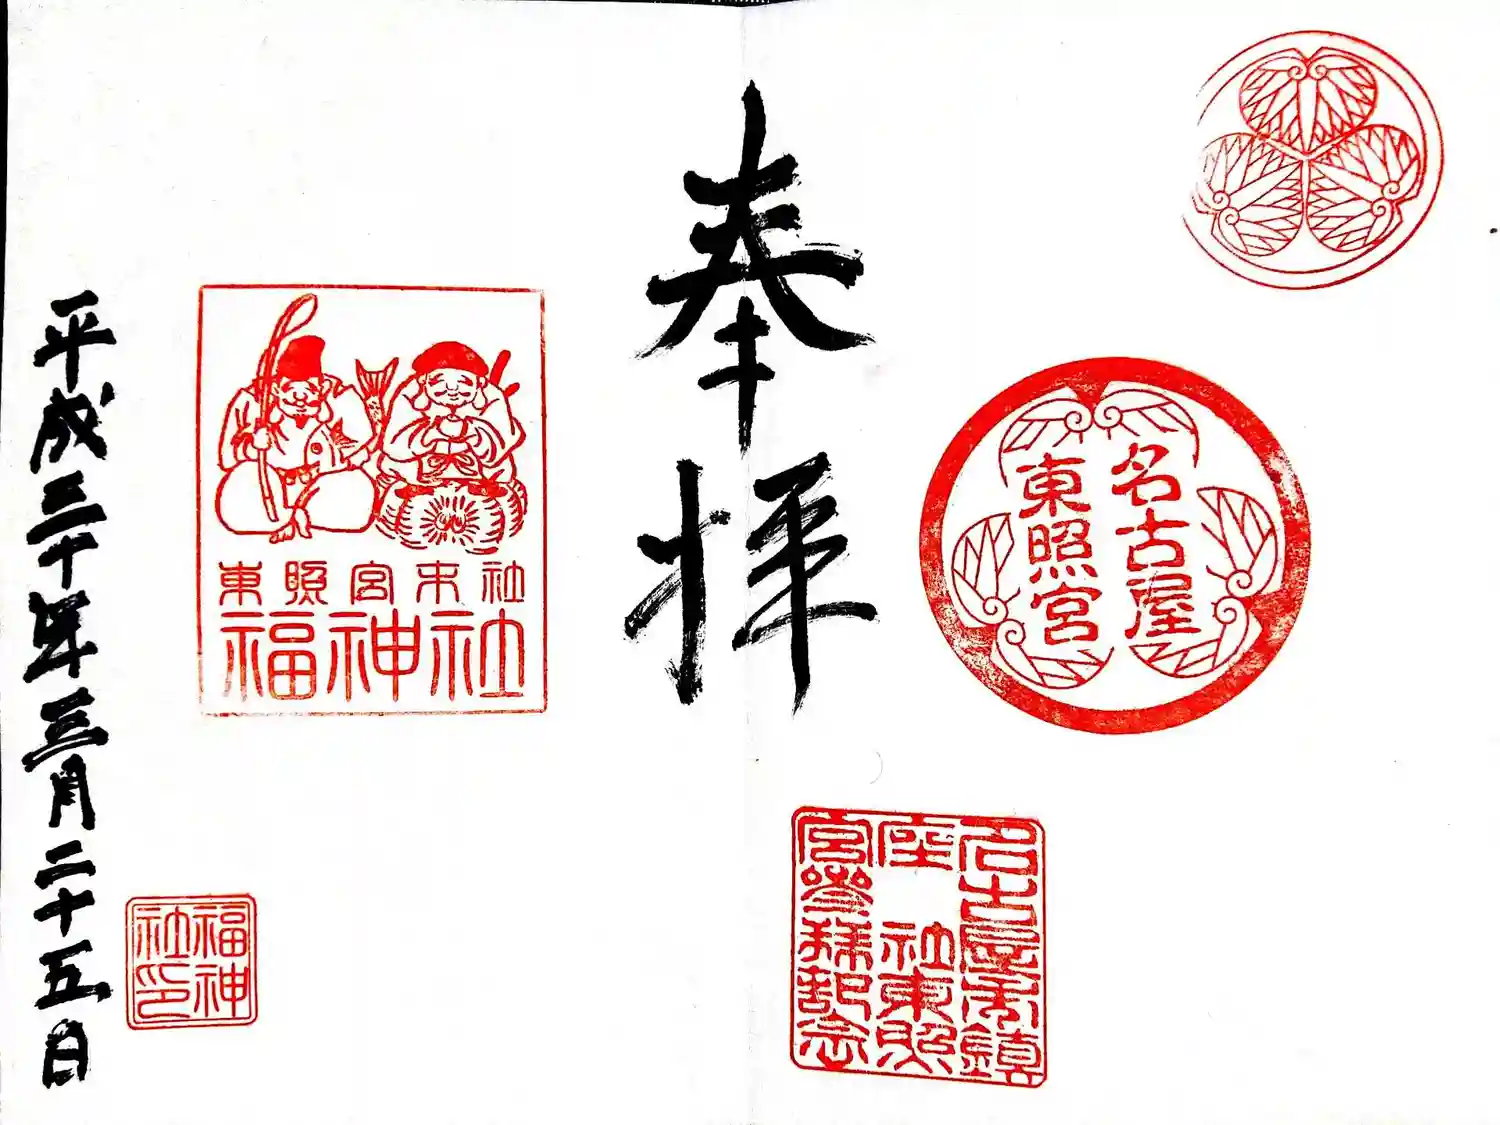 名古屋
東照宮
名古屋市鎮
座 社東照
宮參拝記念
奉拝
東照宮末社
福神社
福神
社印
平成三十年三月二十五日